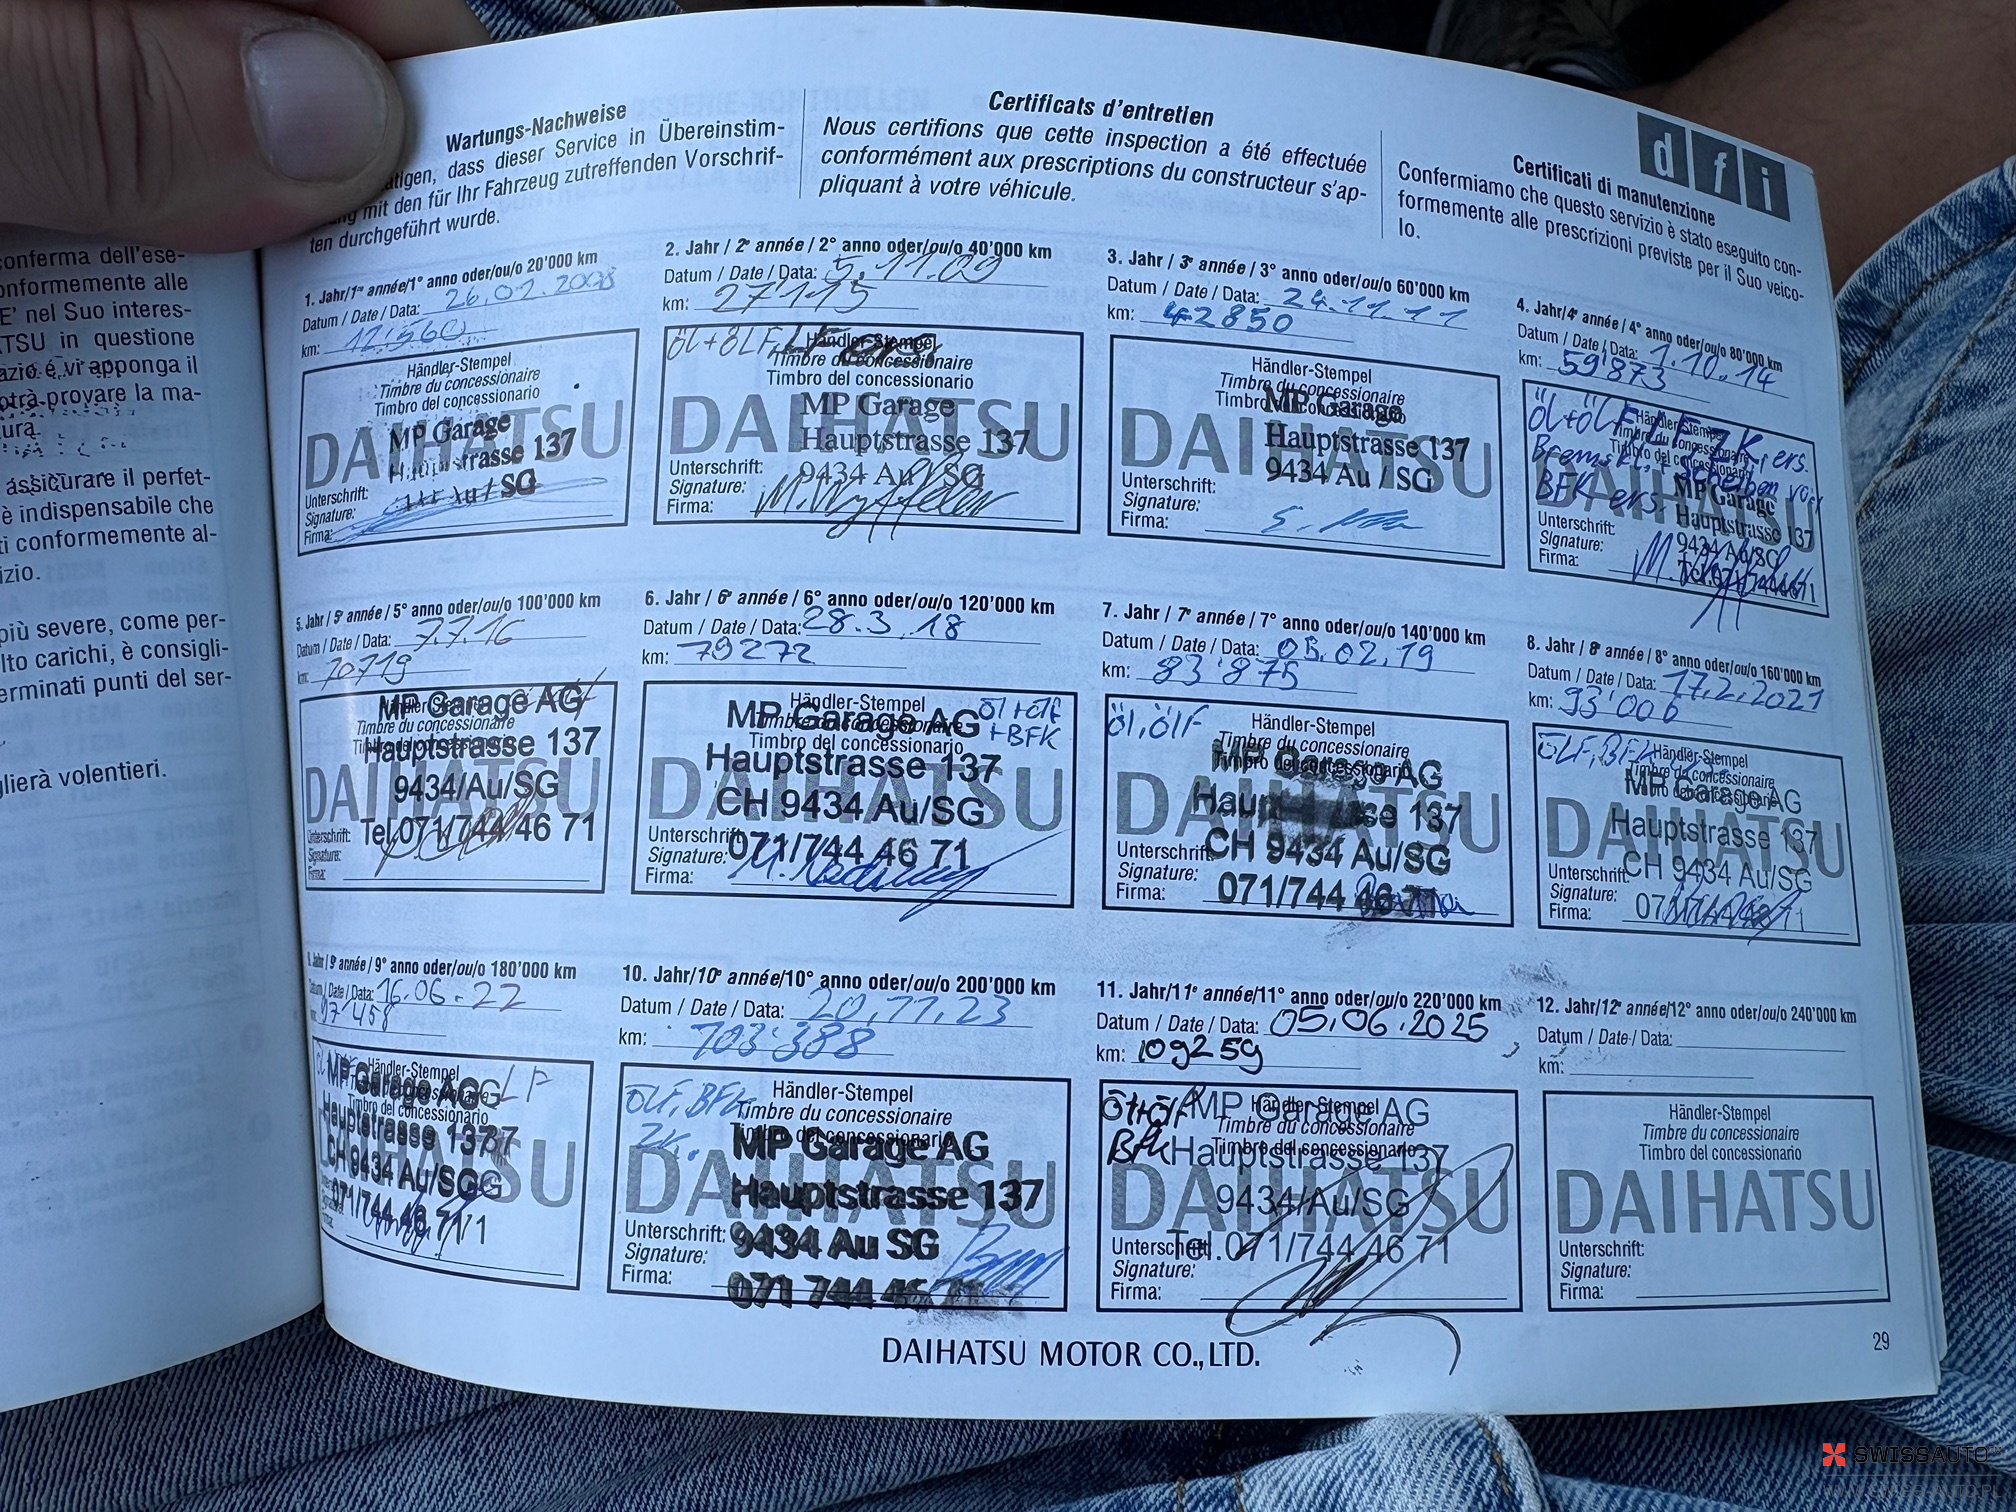 conferma dell'ese-
onformemente alle
E' nel Suo interes-
TSU in questione
azio e vi apponga il
otrà provare la ma-
ura.
assicurare il perfet-
è indispensabile che
ti conformemente al-
izio.
più severe, come per-
lto carichi, è consigli-
erminati punti del ser-
glierà volentieri.
Wartungs-Nachweise
tigen, dass dieser Service in Übereinstim-
mit den für Ihr Fahrzeug zutreffenden Vorschrif-
ten durchgeführt wurde.
Certificats d'entretien
Nous certifions que cette inspection a été effectuée
conformément aux prescriptions du constructeur s'ap-
pliquant à votre véhicule.
dfi
Certificati di manutenzione
Confermiamo che questo servizio è stato eseguito con-
formemente alle prescrizioni previste per il Suo veico-
lo.
1. Jahr/1re année/1° anno oder/ou/o 20'000 km
Datum / Date / Data: 26.02.2008
km: 12'560
Händler-Stempel
Timbre du concessionaire
Timbro del concessionario
DAIHATSU
MP Garage
Hauptstrasse 137
Au / SG
Unterschrift:
Signature:
Firma:
2. Jahr / 2e année / 2° anno oder/ou/o 40'000 km
Datum / Date / Data: 5.11.09
km: 27115
Öl+ÖLF, LF ers.
Händler-Stempel
Timbre du concessionaire
Timbro del concessionario
DAIHATSU
MP Garage
Hauptstrasse 137
9434 Au / SG
Unterschrift:
Signature:
Firma:
3. Jahr / 3e année / 3° anno oder/ou/o 60'000 km
Datum / Date / Data: 24.11.11
km: 42850
Händler-Stempel
Timbre du concessionaire
Timbro del concessionario
DAIHATSU
MP Garage
Hauptstrasse 137
9434 Au / SG
Unterschrift:
Signature:
Firma:
4. Jahr/4e année / 4° anno oder/ou/o 80'000 km
Datum / Date / Data: 1.10.14
km: 59'873
Öl+ÖLF, LF, ZK, ers.
Bremskl.+Scheiben vor
BFK ers.
Händler-Stempel
Timbre du concessionaire
Timbro del concessionario
DAIHATSU
MP Garage
Hauptstrasse 137
9434 Au/SG
Tel.071/7444671
Unterschrift:
Signature:
Firma:
5. Jahr / 5e année / 5° anno oder/ou/o 100'000 km
Datum / Date / Data: 7.7.16
km: 70719
Händler-Stempel
Timbre du concessionaire
Timbro del concessionario
DAIHATSU
MP Garage AG
Hauptstrasse 137
9434/Au/SG
Tel.071/744 46 71
Unterschrift:
Signature:
Firma:
6. Jahr / 6e année / 6° anno oder/ou/o 120'000 km
Datum / Date / Data: 28.3.18
km: 79272
Öl+ÖlF
+BFK
Händler-Stempel
Timbre du concessionaire
Timbro del concessionario
DAIHATSU
MP Garage AG
Hauptstrasse 137
CH 9434 Au/SG
071/744 46 71
Unterschrift:
Signature:
Firma:
7. Jahr / 7e année / 7° anno oder/ou/o 140'000 km
Datum / Date / Data: 05.02.19
km: 83'875
Öl, ÖlF
Händler-Stempel
Timbre du concessionaire
Timbro del concessionario
DAIHATSU
MP Garage AG
Hauptstrasse 137
CH 9434 Au/SG
071/744 46 71
Unterschrift:
Signature:
Firma:
8. Jahr / 8e année / 8° anno oder/ou/o 160'000 km
Datum / Date / Data: 17.2.2021
km: 93'006
ÖLF, BFK
Händler-Stempel
Timbre du concessionaire
Timbro del concessionario
DAIHATSU
MP Garage AG
Hauptstrasse 137
CH 9434 Au/SG
071/744 46 71
Unterschrift:
Signature:
Firma:
Jahr / 9e année / 9° anno oder/ou/o 180'000 km
Datum / Date / Data: 16.06.22
97'458
LF
Händler-Stempel
Timbro del concessionario
DAIHATSU
MP Garage AG
Hauptstrasse 137
CH 9434 Au/SG
071/744 46 71
10. Jahr/10e année/10° anno oder/ou/o 200'000 km
Datum / Date / Data: 20.11.23
km: 103'388
ÖLF, BFK
ZK.
Händler-Stempel
Timbre du concessionaire
Timbro del concessionario
DAIHATSU
MP Garage AG
Hauptstrasse 137
9434 Au SG
071 744 46 71
Unterschrift:
Signature:
Firma:
11. Jahr/11e année/11° anno oder/ou/o 220'000 km
Datum / Date / Data: 05.06.2025
km: 109259
Öl+ÖlF
BFK
Händler-Stempel
Timbre du concessionaire
Timbro del concessionario
DAIHATSU
MP Garage AG
Hauptstrasse 137
9434/Au/SG
Tel.071/744 46 71
Unterschrift:
Signature:
Firma:
12. Jahr/12e année/12° anno oder/ou/o 240'000 km
Datum / Date / Data:
km:
Händler-Stempel
Timbre du concessionaire
Timbro del concessionario
DAIHATSU
Unterschrift:
Signature:
Firma:
DAIHATSU MOTOR CO., LTD.
29
SWISSAUTO